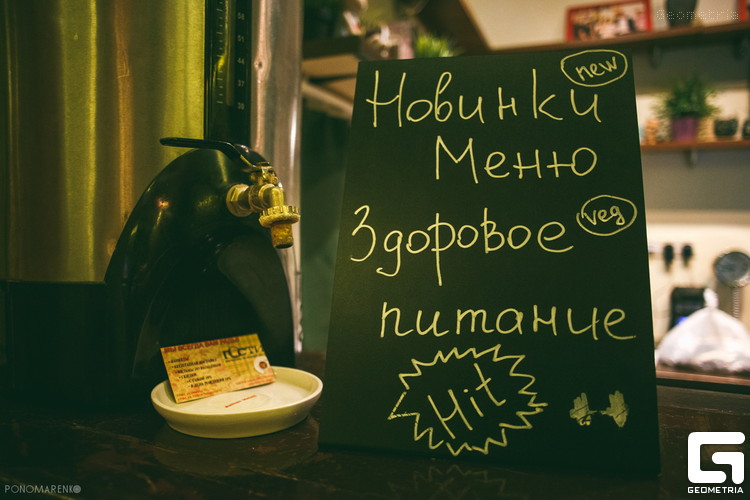 Geometria
new
Новинки
Меню
Здоровое
veg
питание
Hit
PONOMARENKO
GEOMETRIA